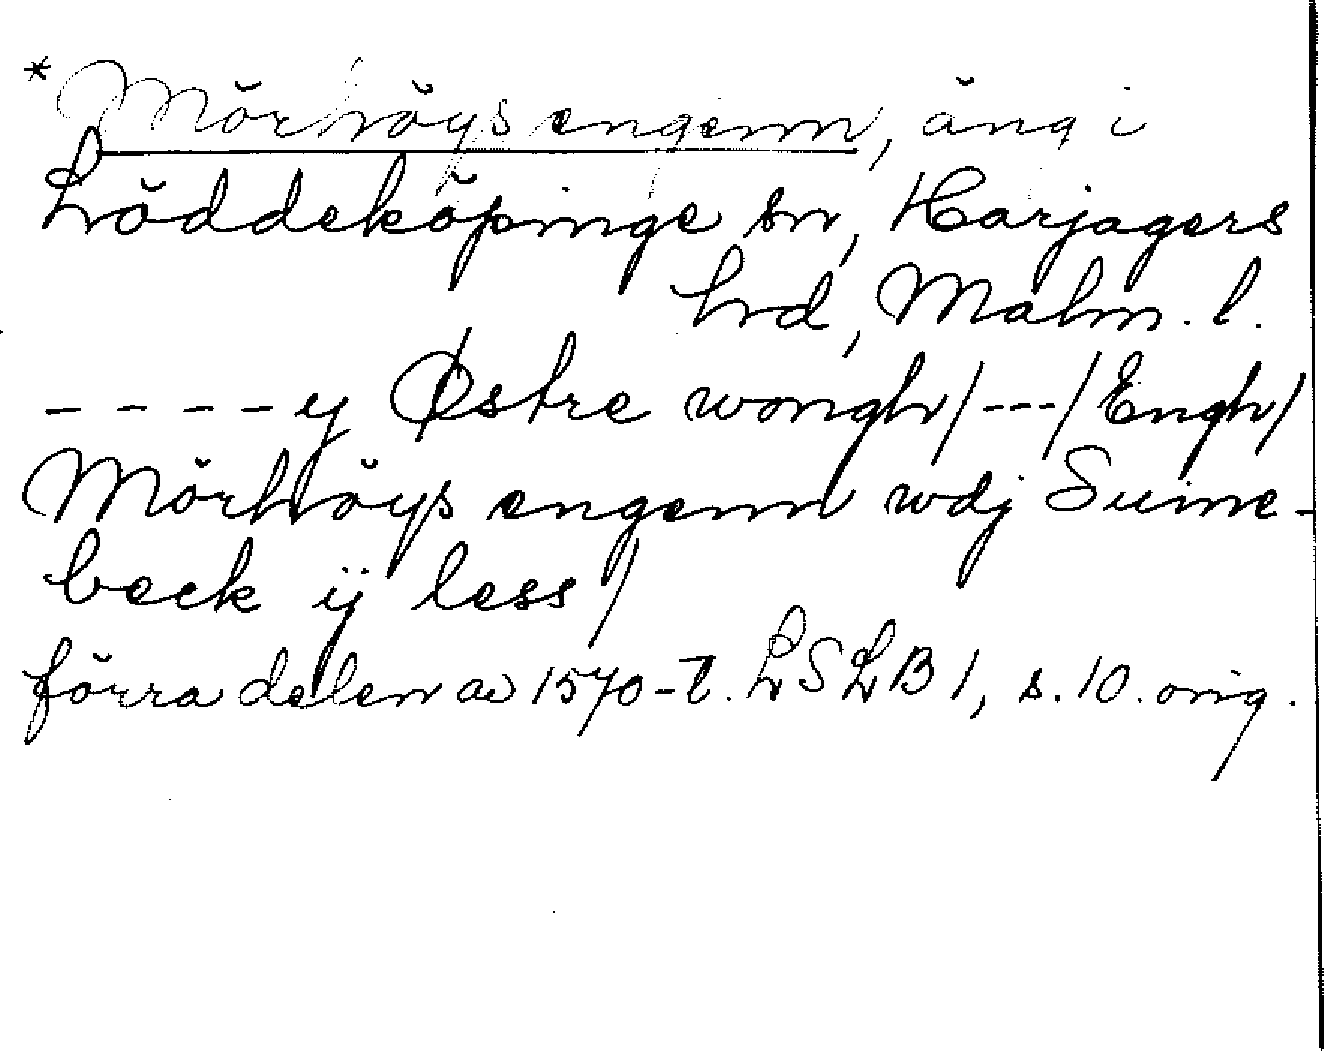 *Mörhöys engenn, äng i
Löddeköpinge sn, Harjagers
hd, Malm. l.
- - - - y Østre wongh/---/Engh/
Mörhöys engenn wdj Suine-
beck ij less/
förra delen av 1570-t. LSLB 1, s. 10. orig.